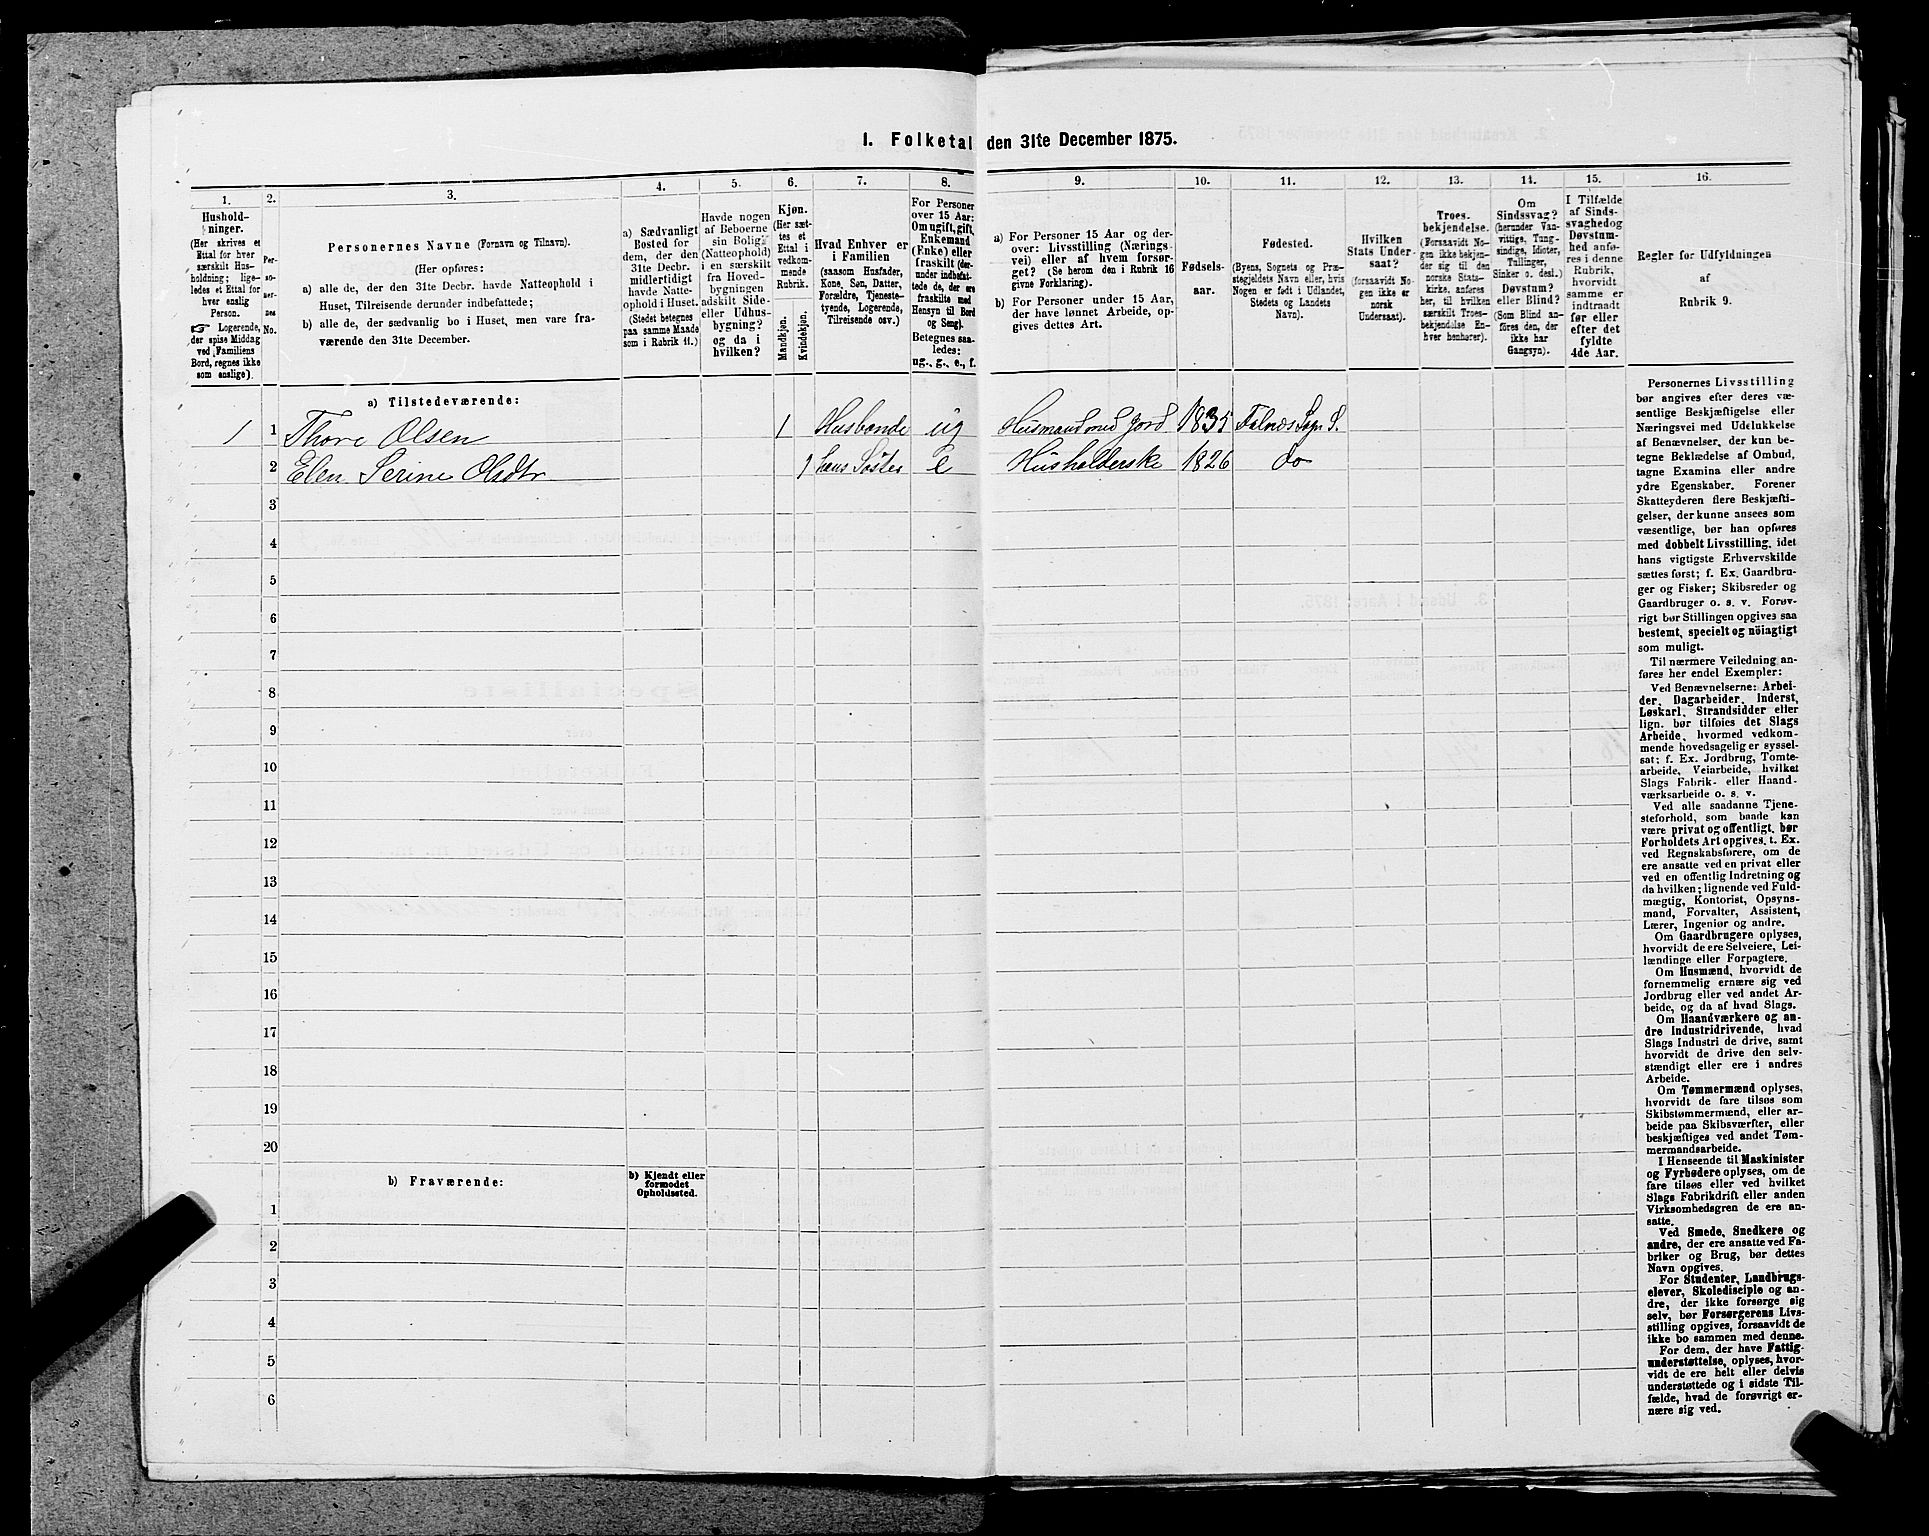 1. Folketal den 31te December 1875.
1. 2. 3. 4. 5. 6. 7. 8. 9. 10. 11. 12. 13. 14. 15. 16.
Husholdninger.
(Her skrives et
Ettal for hver
særskilt Hus-
holdning; lige-
ledes et Ettal for
hver enslig
Person.
☞ Logerende,
der spise Middag
ved Familiens
Bord, regnes ikke
som enslige).
Per-
so-
ner-
nes
No.
Personernes Navne (Fornavn og Tilnavn).
(Her opføres:
a) alle de, der den 31te Decbr. havde Natteophold i
Huset, Tilreisende derunder indbefattede;
b) alle de, der sædvanlig bo i Huset, men vare fra-
værende den 31te December.
a) Sædvanligt
Bosted for
dem, der den
31te Decbr.
midlertidigt
havde Natte-
ophold i Huset.
(Stedet betegnes
paa samme Maade
som i Rubrik 11.)
Havde nogen
af Beboerne
sin Bolig
(Natteophold)
i en særskilt
fra Hoved-
bygningen
adskilt Side-
eller Udhus-
bygning?
og da i
hvilken?
Kjøn.
(Her sæt-
tes et
Ettal i
vedkom-
mende
Rubrik.
Mandkjøn.
Kvindekjøn.
Hvad Enhver er
i Familien
(saasom Husfader,
Kone, Søn, Datter,
Forældre, Tjeneste-
tyende, Logerende,
Tilreisende osv.)
For Personer
over 15 Aar:
Om ugift, gift,
Enkemand
(Enke) eller
fraskilt (der-
under indbefat-
tede de, der ere
fraskilte med
Hensyn til Bord
og Seng).
Betegnes saa-
ledes:
ug., g., e., f.
a) For Personer 15 Aar og der-
over: Livsstilling (Nærings-
vei) eller af hvem forsør-
get? (Se herom den i Rubrik 16
givne Forklaring).
b) For Personer under 15 Aar,
der have lønnet Arbeide, op-
gives dettes Art.
Fødsels-
aar.
Fødested.
(Byens, Sognets og Præ-
stegjeldets Navn eller, hvis
Nogen er født i Udlandet,
Stedets og Landets
Navn).
Hvilken
Stats Under-
saat?
(forsaavidt No-
gen ikke er
norsk
Undersaat).
Troes-
bekjendelse.
(Forsaavidt No-
gen ikke bekjen-
der sig til den
norske Stats-
kirke, anføres
her, til hvilken
særskilt Troes-
bekjendelse En-
hver henhører).
Om
Sindssvag?
(herunder Van-
vittige, Tung-
sindige, Idioter,
Tullinger,
Sinker o. desl.)
Døvstum?
eller Blind?
(Som Blind an-
føres den, der
ikke har
Gangsyn).
I Tilfælde
af Sinds-
svaghed og
Døvstum-
hed anfø-
res i denne
Rubrik,
hvorvidt
samme er
indtraadt
før eller
efter det
fyldte
4de Aar.
Regler for Udfyldningen
af
Rubrik 9.
a) Tilstedeværende:
1 1 Thore Olsen 1 Husbonde ug Husmand med Jord 1835 Falnes Sogn S.
2 Elen Serine Olsdtr 1 hans Søster e Husholderske 1826 do
3
4
5
6
7
8
9
10
11
12
13
14
15
16
17
18
19
20
b) Fraværende:
b) Kjendt eller
formodet
Opholdssted.
1
2
3
4
5
6
Personernes Livsstilling
bør angives efter deres væ-
sentlige Beskjæftigelse eller
Næringsvei med Udelukkelse
af Benævnelser, der kun be-
tegne Beklædelse af Ombud,
tagne Examina eller andre
ydre Egenskaber. Forener
Skatteyderen flere Beskjæfti-
gelser, der kunne ansees som
væsentlige, bør han opføres
med dobbelt Livsstilling, idet
hans vigtigste Erhvervskilde
sættes først; f. Ex. Gaardbru-
ger og Fisker; Skibsreder og
Gaardbruger o. s. v. Forøv-
rigt bør Stillingen opgives saa
bestemt, specielt og nöiagtigt
som muligt.
Til nærmere Veiledning an-
føres her endel Exempler:
Ved Benævnelserne: Arbei-
der, Dagarbeider, Inderst,
Løskarl, Strandsidder eller
lign. bør tilføies det Slags
Arbeide, hvormed vedkom-
mende hovedsagelig er syssel-
sat; f. Ex. Jordbrug, Tomte-
arbeide, Veiarbeide, hvilket
Slags Fabrik- eller Haand-
værksarbeide o. s. v.
Ved alle saadanne Tjene-
steforhold, som baade kan
være privat og offentligt, bør
Forholdets Art opgives, t. Ex.
ved Regnskabsførere, om de
ere ansatte ved en privat eller
ved en offentlig Indretning og
da hvilken; lignende ved Fuld-
mægtig, Kontorist, Opsyns-
mand, Forvalter, Assistent,
Lærer, Ingeniør og andre.
Om Gaardbrugere oplyses,
hvorvidt de ere Selveiere, Lei-
lændinge eller Forpagtere.
Om Husmænd, hvorvidt de
fornemmelig ernære sig ved
Jordbrug eller ved andet Ar-
beide, og da af hvad Slags.
Om Haandværkere og an-
dre Industridrivende, hvad
Slags Industri de drive, samt
hvorvidt de drive den selv-
stændigt eller ere i andres
Arbeide.
Om Tømmermænd oplyses,
hvorvidt de fare tilsøs som
Skibstømmermænd, eller ar-
beide paa Skibsværfter, eller
beskjæftiges ved andet Tøm-
mermandsarbeide.
I Henseende til Maskinister
og Fyrbødere oplyses, om de
fare tilsøs eller ved hvilket
Slags Fabrikdrift eller anden
Virksomhedsgren de ere an-
satte.
Ved Smede, Snedkere og
andre, der ere ansatte ved Fa-
briker og Brug, bør dettes
Navn opgives.
For Studenter, Landbrugs-
elever, Skoledisciple og an-
dre, der ikke forsørge sig
selv, bør Forsørgerens Livs-
stilling opgives, forsaavidt de
ikke bo sammen med denne.
For dem, der have Fattig-
understøttelse, oplyses, hvor-
vidt de ere helt eller delvis
understøttede og i sidste Til-
fælde, hvad de forøvrigt er-
nære sig ved.